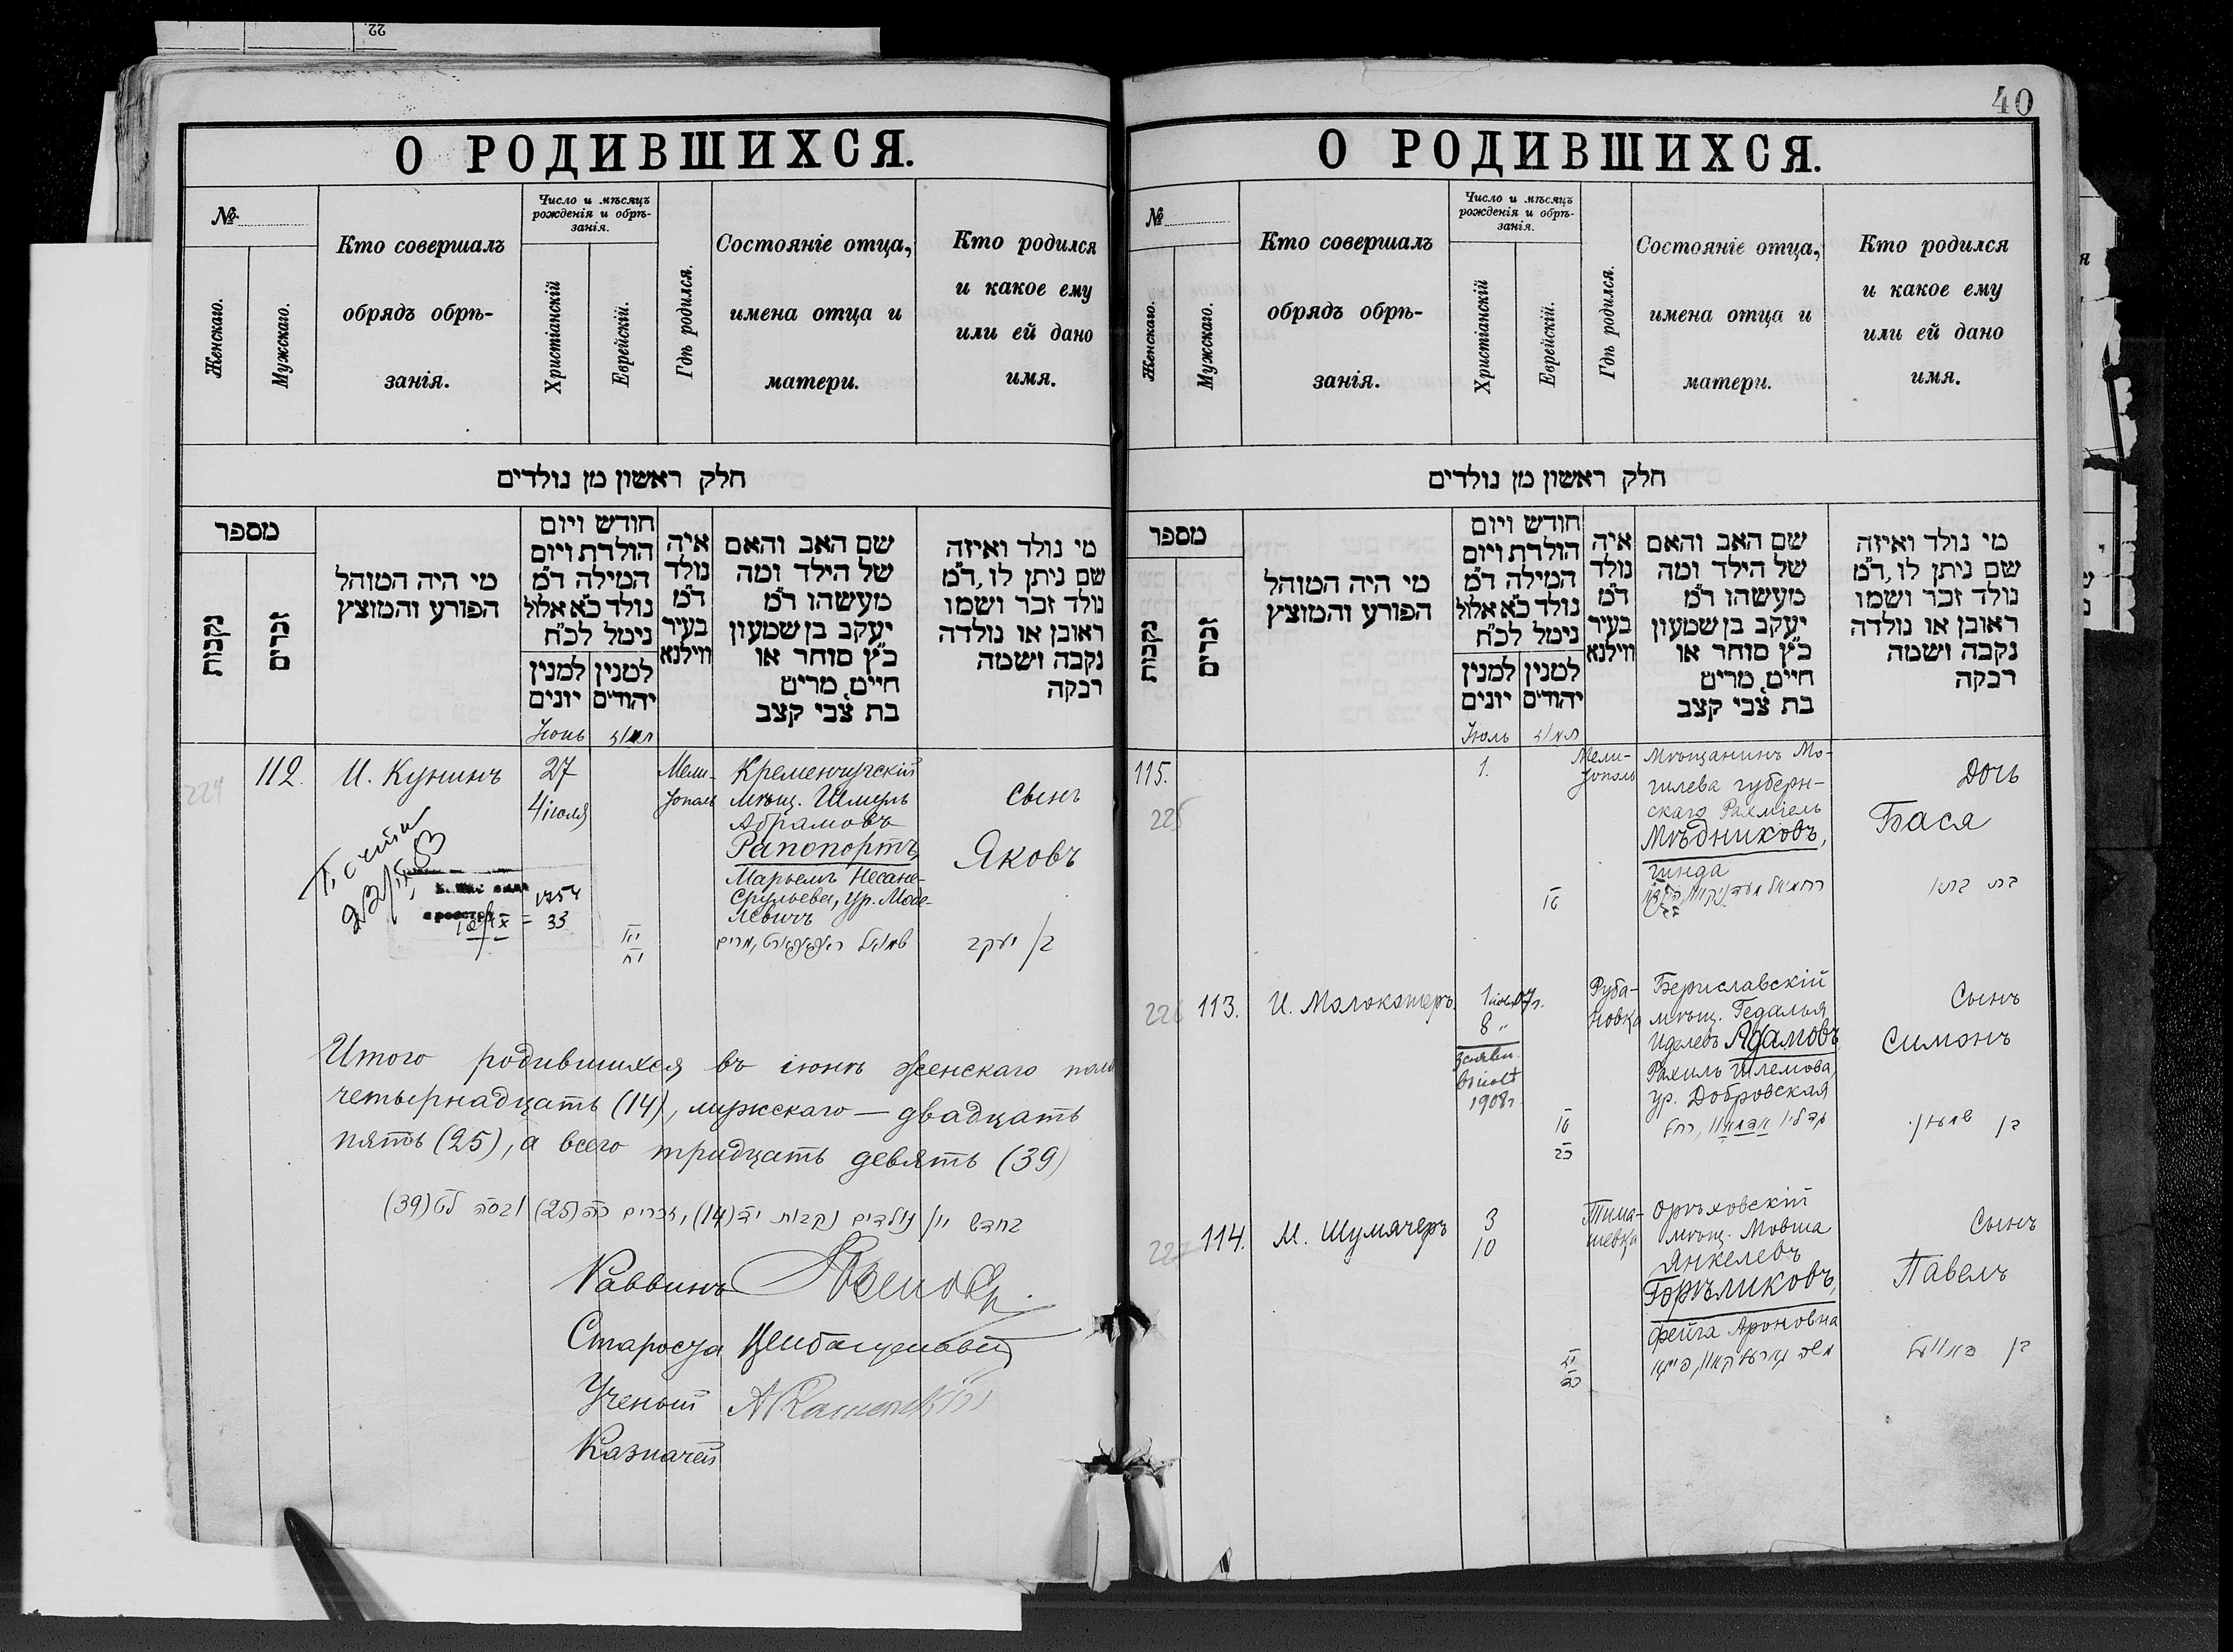 22
О РОДИВШИХСЯ.
№
Женскаго.
Мужскаго.
Кто совершалъ
обрядъ обрѣ-
занія.
Число и мѣсяцъ
рожденія и обрѣ-
занія.
Христіанскій
Еврейскій.
Гдѣ родился.
Состояніе отца,
имена отца и
матери.
Кто родился
и какое ему
или ей дано
имя.
חלק ראשון מן נולדים
מספר
נקבות
זכרים
מי היה המוהל
הפורע והמוצץ
חודש ויום
הולדת ויום
המילה ד״מ
נולד כ״א אלול
נימל לכ״ח
למנין יונים
למנין יהודים
איה
נולד
ד״מ
בעיר
ווילנא
שם האב והאם
של הילד ומה
מעשהו ד״מ
יעקב בן שמעון
כ״ץ סוחר או
חייט, מרים
בת צבי קצב
מי נולד ואיזה
שם ניתן לו, ד״מ
נולד זכר ושמו
ראובן או נולדה
נקבה ושמה
רבקה
Іюнь
תמוז
224
112.
И. Кунинъ
27
4 іюля
Мели-
тополь
Кременчугскій
мѣщ. Шмуль
Абрамовъ
Рапопортъ,
Марьемъ Несане-
Срульева, ур.
Сынъ
Яковъ
בן יעקב
Итого родившихся въ іюнѣ женскаго пола
четырнадцать (14), мужскаго — двадцать
пять (25), а всего тридцать девять (39)
בחדש יון נולדים נקבות יד (14), זכרים כה (25) ובסה לט (39)
Раввинъ
Староста
Ученый
Казначей
40
О РОДИВШИХСЯ.
№
Женскаго.
Мужскаго.
Кто совершалъ
обрядъ обрѣ-
занія.
Число и мѣсяцъ
рожденія и обрѣ-
занія.
Христіанскій
Еврейскій.
Гдѣ родился.
Состояніе отца,
имена отца и
матери.
Кто родился
и какое ему
или ей дано
имя.
חלק ראשון מן נולדים
מספר
נקבות
זכרים
מי היה המוהל
הפורע והמוצץ
חודש ויום
הולדת ויום
המילה ד״מ
נולד כ״א אלול
נימל לכ״ח
למנין יונים
למנין יהודים
איה
נולד
ד״מ
בעיר
ווילנא
שם האב והאם
של הילד ומה
מעשהו ד״מ
יעקב בן שמעון
כ״ץ סוחר או
חייט, מרים
בת צבי קצב
מי נולד ואיזה
שם ניתן לו, ד״מ
נולד זכר ושמו
ראובן או נולדה
נקבה ושמה
רבקה
Іюль
תמוז
115.
225
1.
Мели-
тополь
Мѣщанинъ Мо-
гилева губерн-
скаго Рахміель
Мѣдниковъ,
Гинда
Дочь
Бася
טו
226
113.
И. Молокотеръ
8 "
1908 г.
Руба-
новка
Бериславскій
мѣщ. Гедалья
Иделевъ Адамовъ,
Рахиль Шлемова,
ур. Добровская
Сынъ
Симонъ
טו
כב
בן שמעון
227
114.
М. Шумахеръ
3
10
Тима-
шевка
Орѣховскій
мѣщ. Мовша
Янкелевъ
Горѣликовъ,
Фейга Ароновна
Сынъ
Павелъ
יז
כד